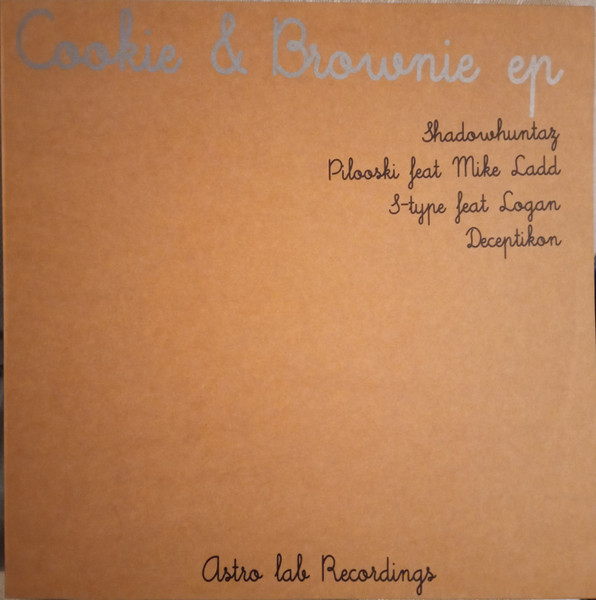 Cookie & Brownie ep
Shadowhuntaz
Pilooski feat Mike Ladd
S-type feat Logan
Deceptikon
Astro lab Recordings